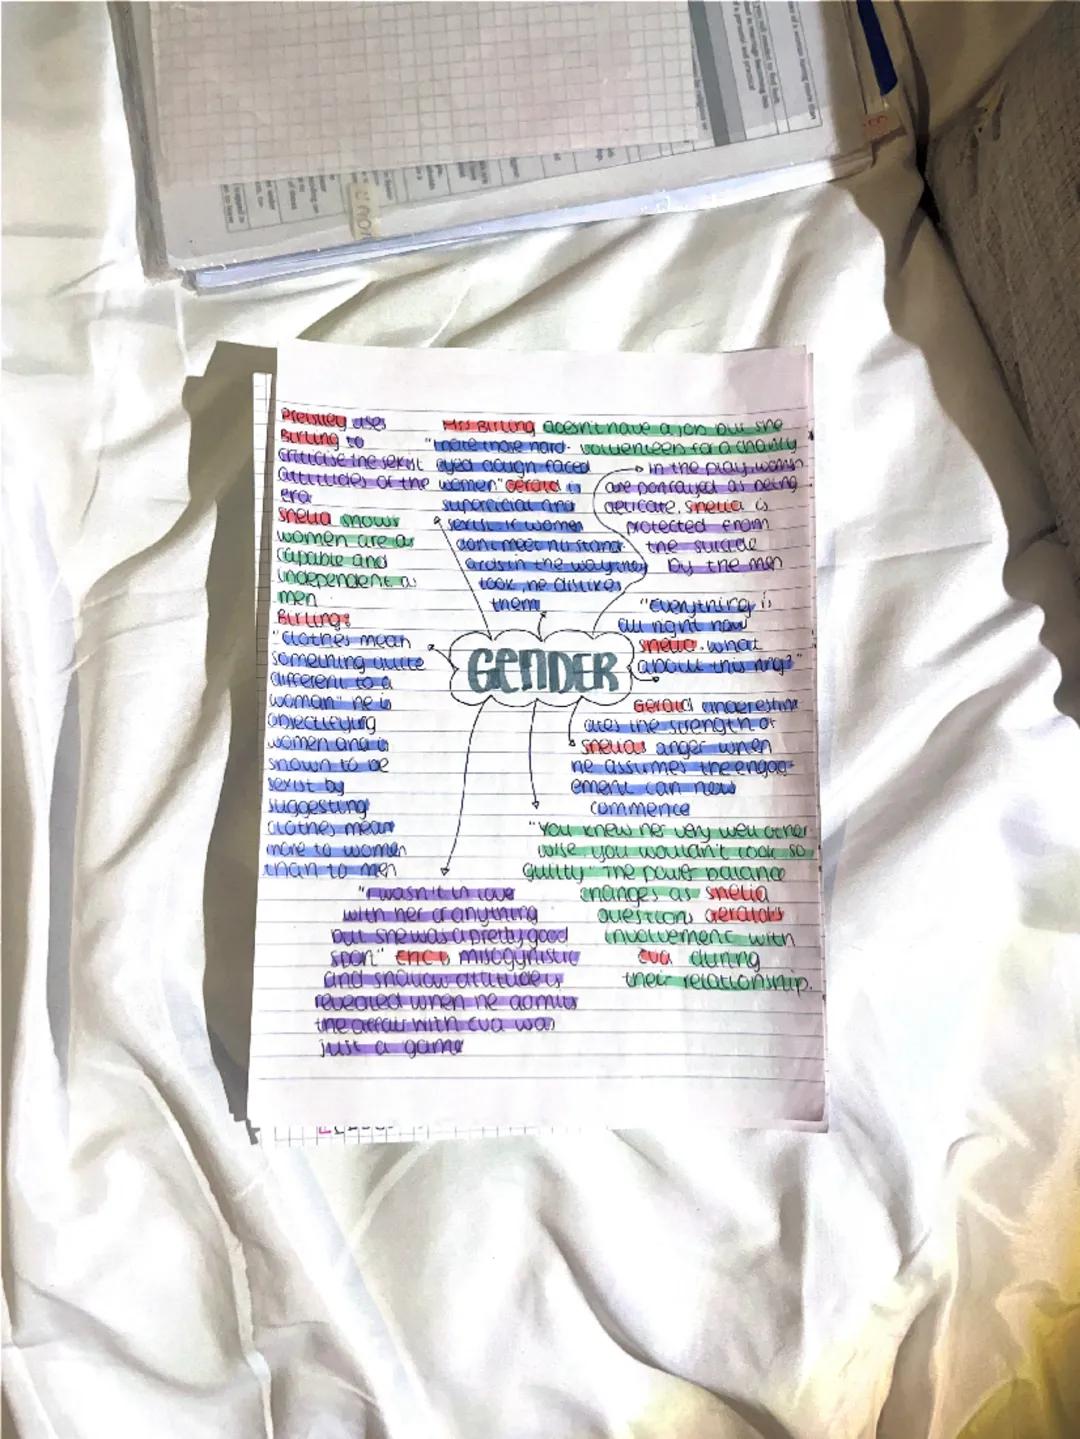 Preistley uses
Birling to
criticise the sexist
attitudes of the
era
Sheila shows
women are as
capable and
independent as
men
Birling:
"clothes mean
something quite
different to a
woman" he is
objectifying
women and is
shown to be
sexist by
suggesting
clothes mean
more to women
than to men
Mrs Birling doesn't have a job but she
volunteers for a charity
"I hate those hard-
eyed dough faced
women" Gerald is
superficial and
sexist if women
don't meet his stand-
ards in the way they
look, he dislikes
them
In the play, women
are portrayed as being
delicate. Sheila is
protected from
the suicide
by the men
"Everything is
all right now
Sheila. What
about this ring?"
GENDER
Gerald underestim
ates the strength of
Sheilas anger when
he assumes the engag-
ement can now
commence
"You knew her very well other
wise you wouldn't look so
guilty" The power balance
changes as Sheila
questions Gerald's
involvement with
Eva during
their relationship.
"I wasn't in love
with her or anything
but she was a pretty good
sport" Eric's misogynistic
and shallow attitude is
revealed when he admits
the affair with Eva was
just a game